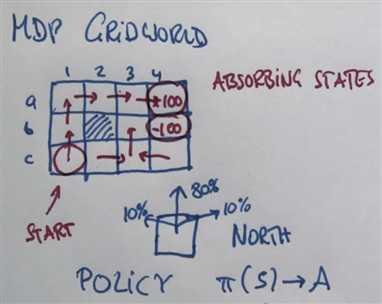 MDP GRIDWORLD
1 2 3 4
ABSORBING STATES
a +100
b -100
c
START
80%
10% 10%
NORTH
POLICY π(S)→A